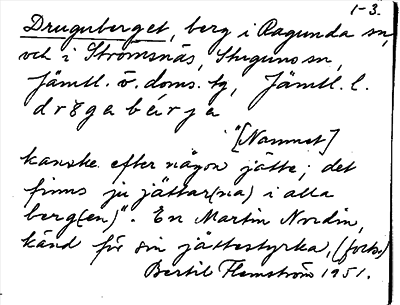 1-3.
Druguberget, berg i Ragunda sn,
och i Strömsnäs, Stuguns sn,
Jämtl. ö. doms. tg, Jämtl. l.
drøgabérja
"[Namnet]
kanske efter någon jätte; det
finns ju jättar(na) i alla
berg(en)". En Martin Nordin,
känd för sin jättestyrka, (forts.)
Bertil Flemström 1951.